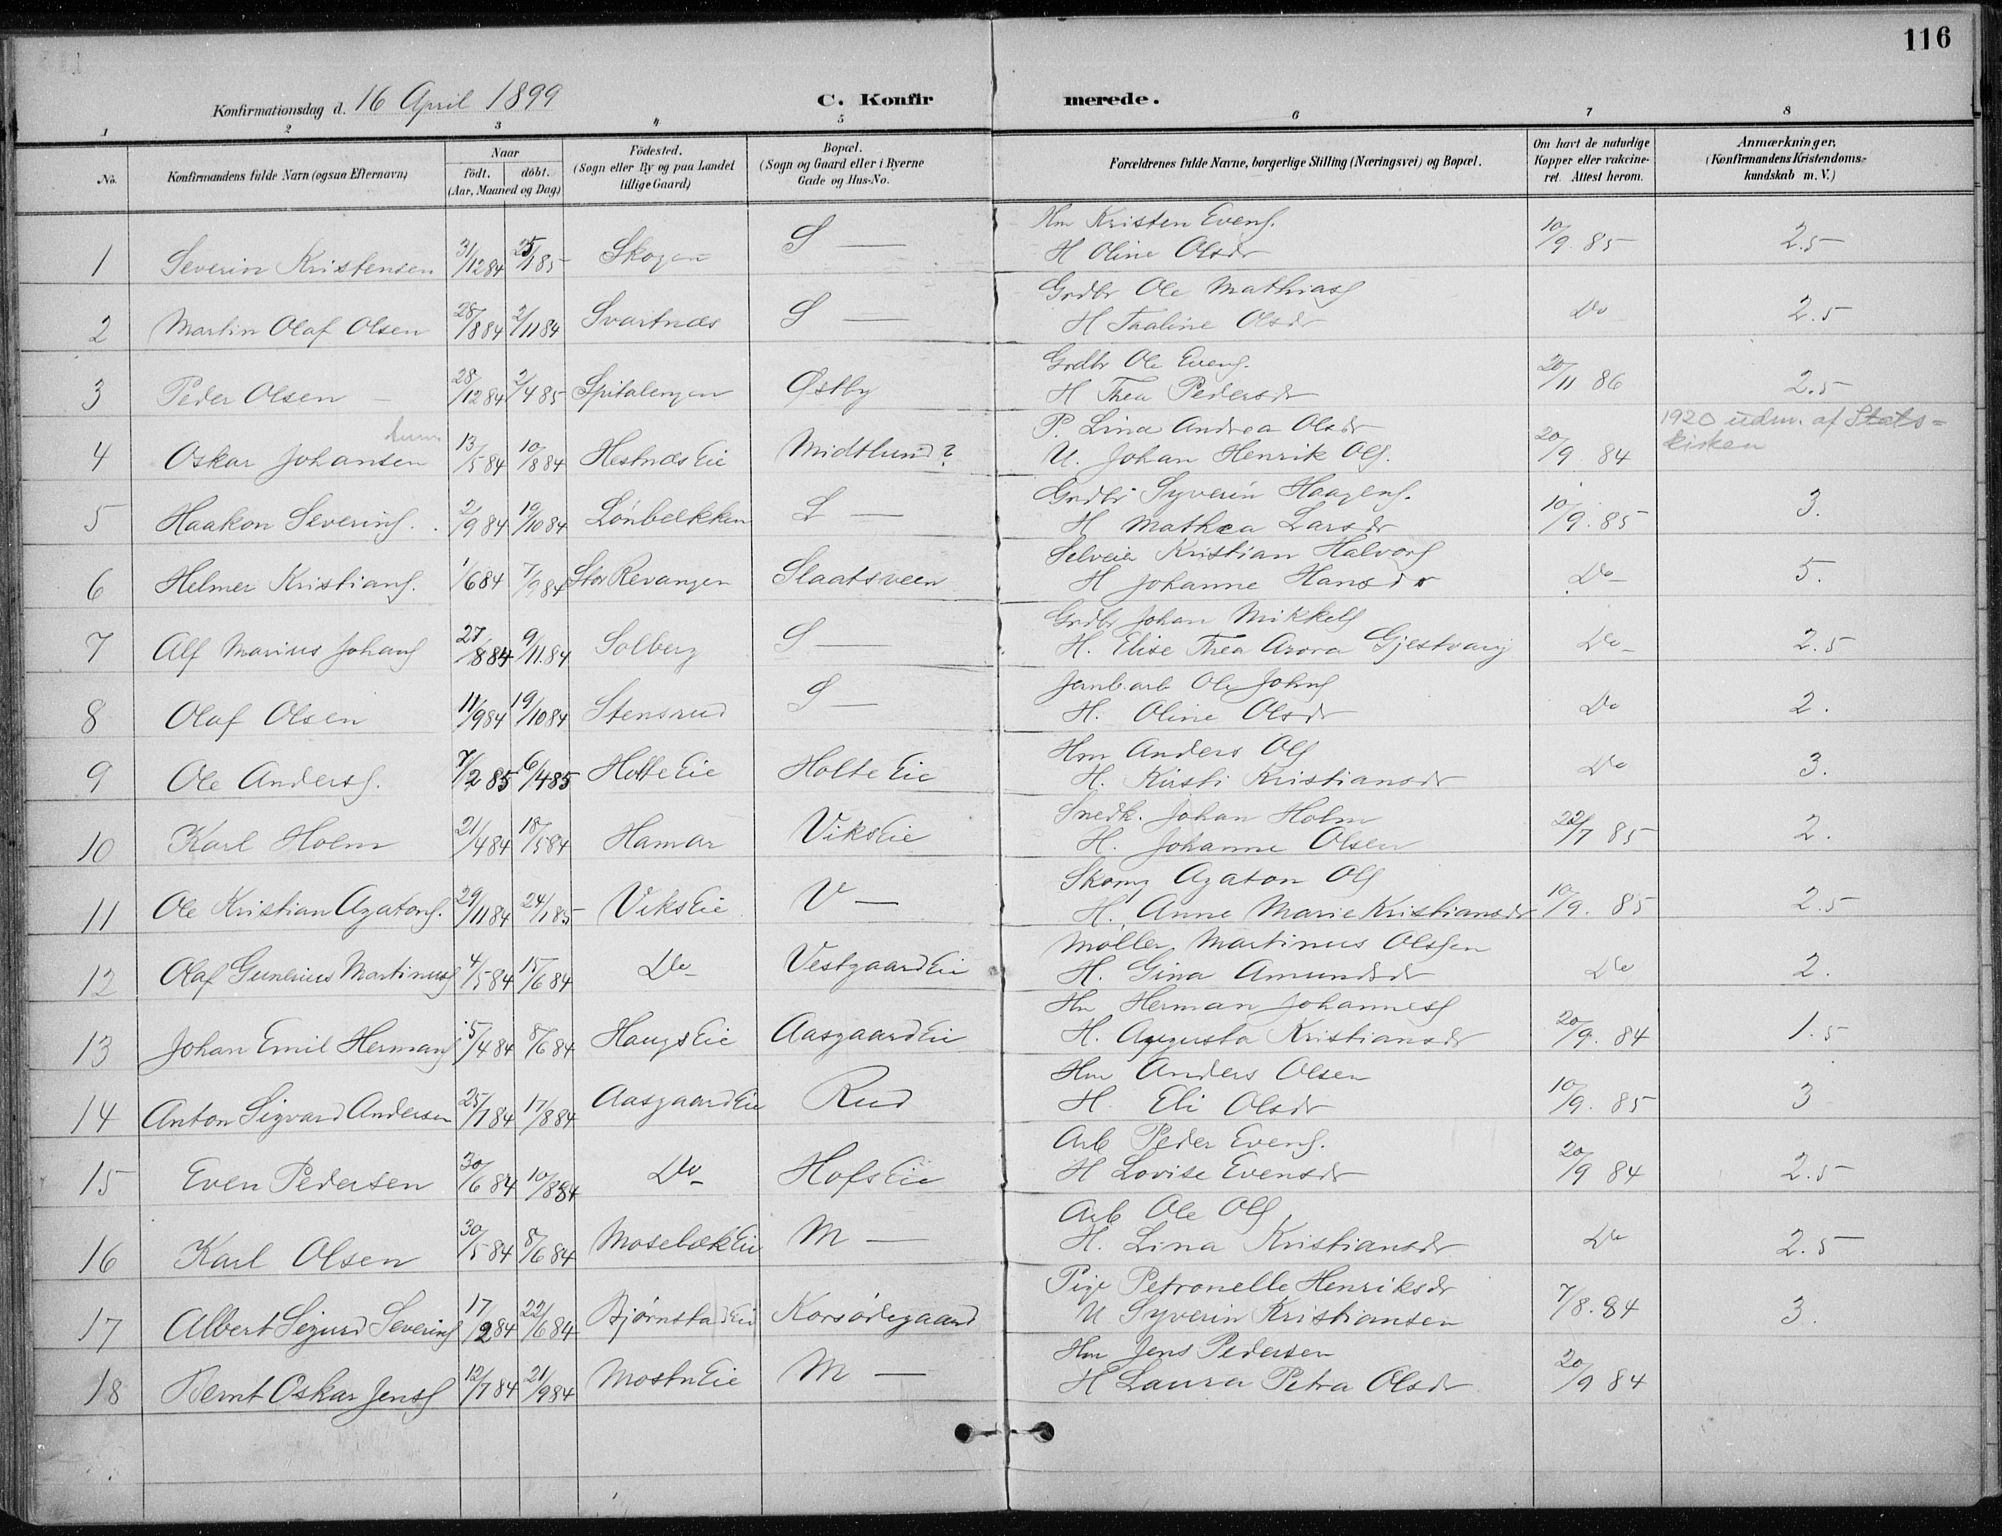 116
Konfirmationsdag d. 16 April 1899
C. Konfirmerede.
1 2 3 4 5 6 7 8
No. Konfirmandens fulde Navn (ogsaa Efternavn) Naar født. døbt. (Aar, Maaned og Dag) Fødested. (Sogn eller By og paa Landet tillige Gaard) Bopæl. (Sogn og Gaard eller i Byerne Gade og Hus-No. Forældrenes fulde Navne, borgerlige Stilling (Næringsvei) og Bopæl. Om havt de naturlige Kopper eller vakcineret. Attest herom. Anmærkninger, (Konfirmandens Kristendomskundskab m. V.)
1 Severin Kristensen 31/12 84 25/1 85 Skogen S — Hm Kristen Evens. 10/9. 85 2.5
H Oline Olsdr
2 Martin Olaf Olsen 28/8 84 2/11 84 Svartnæs S — Grdbr Ole Mathias. Do 2.5
H Thaline Olsdr
3 Peder Olsen 28/12 84 2/4 85 Spitalengen Østby Grdbr Ole Evens. 20/11 86 2.5
H Thea Pedersdr
4 Oskar Johansen 13/5 84 10/8 84 Hestnæs Eie Midtlund? P. Lina Andrea Olsdr 20/9. 84 1920 udm. af Stats=
U. Johan Henrik Ols. kirken
5 Haakon Severins. 2/9 84 19/10 84 Lønbekken L — Grdbr Syverin Haagens. 10/9. 85 3.
H Mathea Larsdr
6 Helmer Kristians. 1/6 84 7/9 84 Stor Revangen Slaatsveen Selveier Kristian Halvors. Do 5.
H Johanne Hansdr
7 Alf Marius Johans. 27/8 84 9/11. 84 Solberg S — Grdbr Johan Mikkels. Do 2.5
H. Elise Thea Arora Gjestvang
8 Olaf Olsen 11/9 84 19/10 84 Stensrud S — Jernb.arb Ole Johns. Do 2.
H. Oline Olsdr
9 Ole Anders. 7/2 85 6/4 85 Holte Eie Holte Eie Hm Anders Ols. Do 3.
H. Kirsti Kristiansdr
10 Karl Holm 21/4 84 18/5 84 Hamar Viks Eie Snedk. Johan Holm 22/7 85 2.
H. Johanne Olsen
11 Ole Kristian Agatons. 29/11 84 24/1 85 Viks Eie V — Skomg Agaton Ols. 10/9. 85 2.5
H. Anne Marie Kristiansdr
12 Olaf Gunerius Martinus. 4/5 84 15/6 84 Do Vestgaard Eie Møller Martinus Olssen Do 2.
H. Gina Amundsdr
13 Johan Emil Hermans. 15/4 84 8/6 84 Haugs Eie Aasgaard Eie Hm Herman Johannes. 20/9. 84 1.5
H. Augusta Kristiansdr
14 Anton Sigvard Andersen 25/7 84 17/8 84 Aasgaard Eie Rud Hm Anders Olsen 10/9. 85 3
H Eli Olsdr
15 Even Pedersen 30/6 84 10/8 84 Do Hofs Eie Arb Peder Evens. 20/9 84 2.5
H Lovise Evensdr
16 Karl Olsen 30/5 84 8/6 84 Mosebæk Eie M — Arb Ole Ols. Do 2.5
H. Lina Kristiansdr
17 Albert Sigurd Severins. 17/2 84 22/6 84 Bjørnstad Eie Korsødegaard Pige Petronelle Henriksdr 7/8. 84 3.
U Syverin Kristiansen
18 Bernt Oskar Jens. 12/7 84 21/9 84 Mostu Eie M — Hm Jens Pedersen 20/9 84
H Laura Petra Olsdr